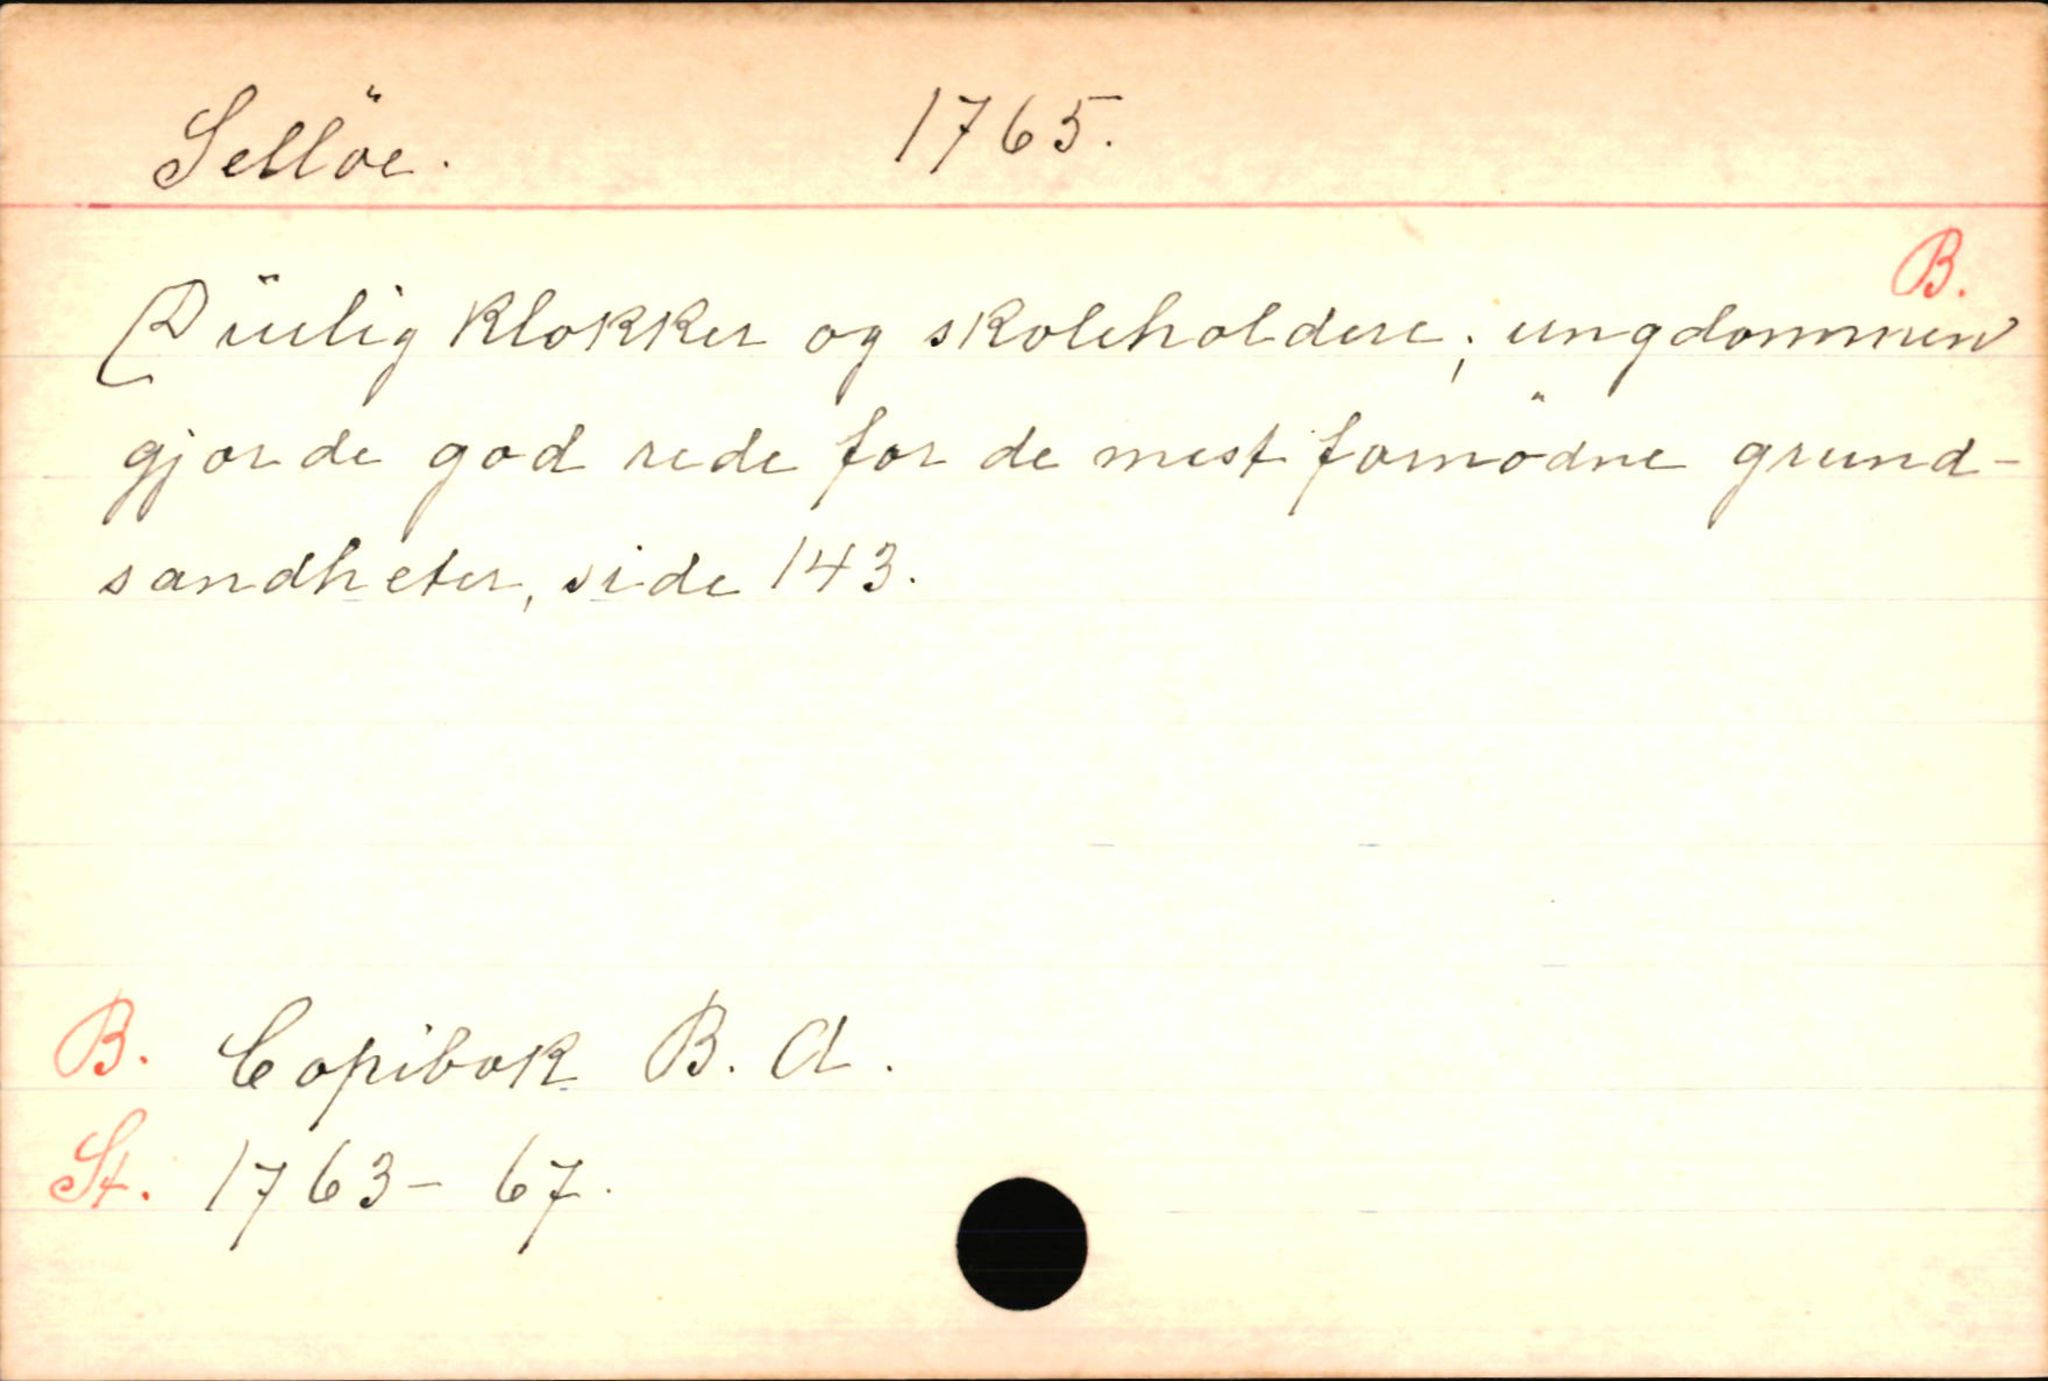 Sellöe. 1765.
B.
Rüelig klokker og skoleholdere; ungdommen
gjorde god rede for de mest fornödne grund-
sandheter, side 143.
B. Copibok B. A.
St. 1763-67.